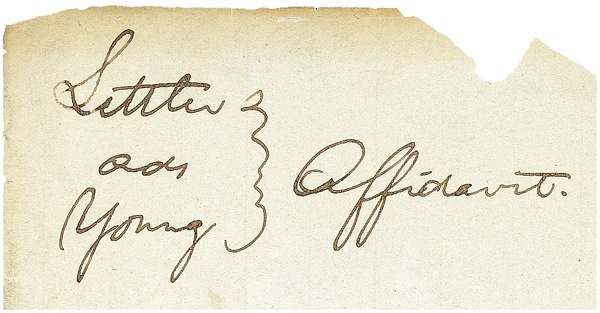 Littler
ads
Young
Affidavit.